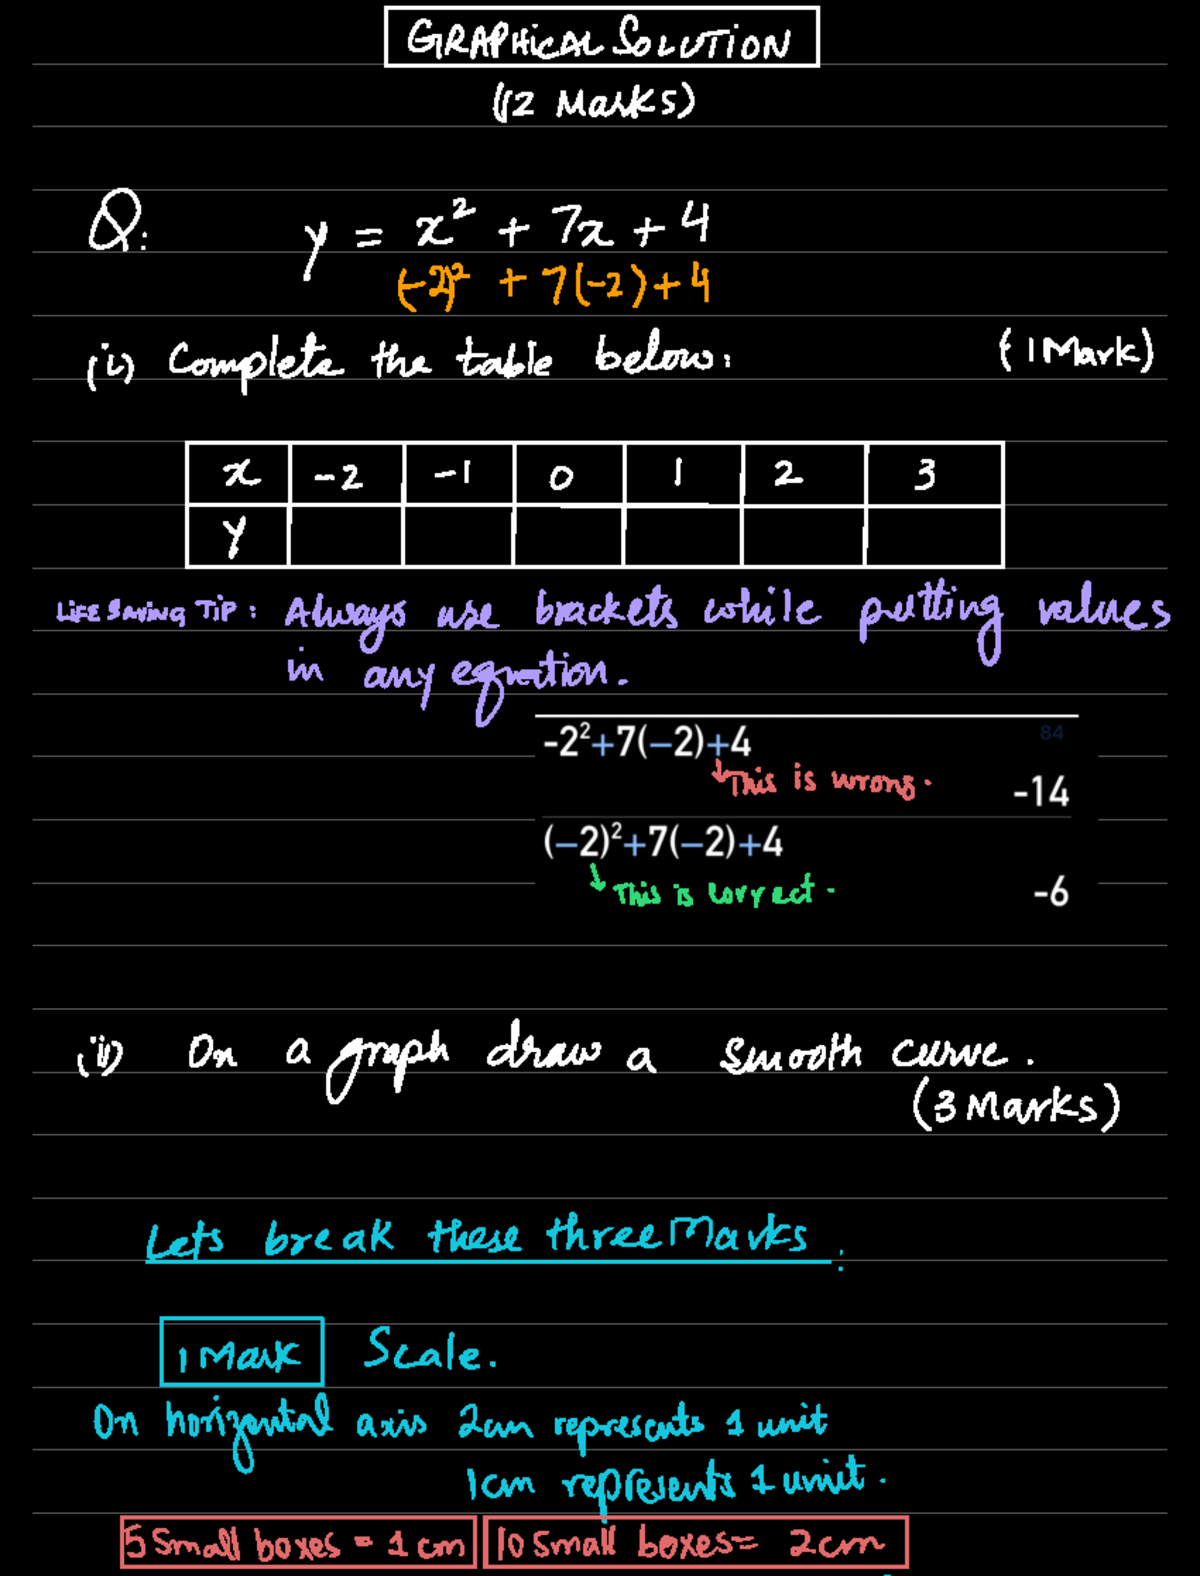 GRAPHICAL SOLUTION
(12 Marks)
Q: y = x² + 7x + 4
(-2)² + 7(-2) + 4
(i) Complete the table below: (1 Mark)
x -2 -1 0 1 2 3
y
LIFE SAVING TIP: Always use brackets while putting values
in any equation.
84
-2²+7(−2)+4
This is wrong.
-14
(−2)²+7(−2)+4
This is correct.
-6
(ii) On a graph draw a smooth curve.
(3 Marks)
Lets break these three Marks:
1 Mark Scale.
On horizontal axis 2cm represents 1 unit
1cm represents 1 unit.
5 Small boxes = 1 cm 10 Small boxes = 2cm